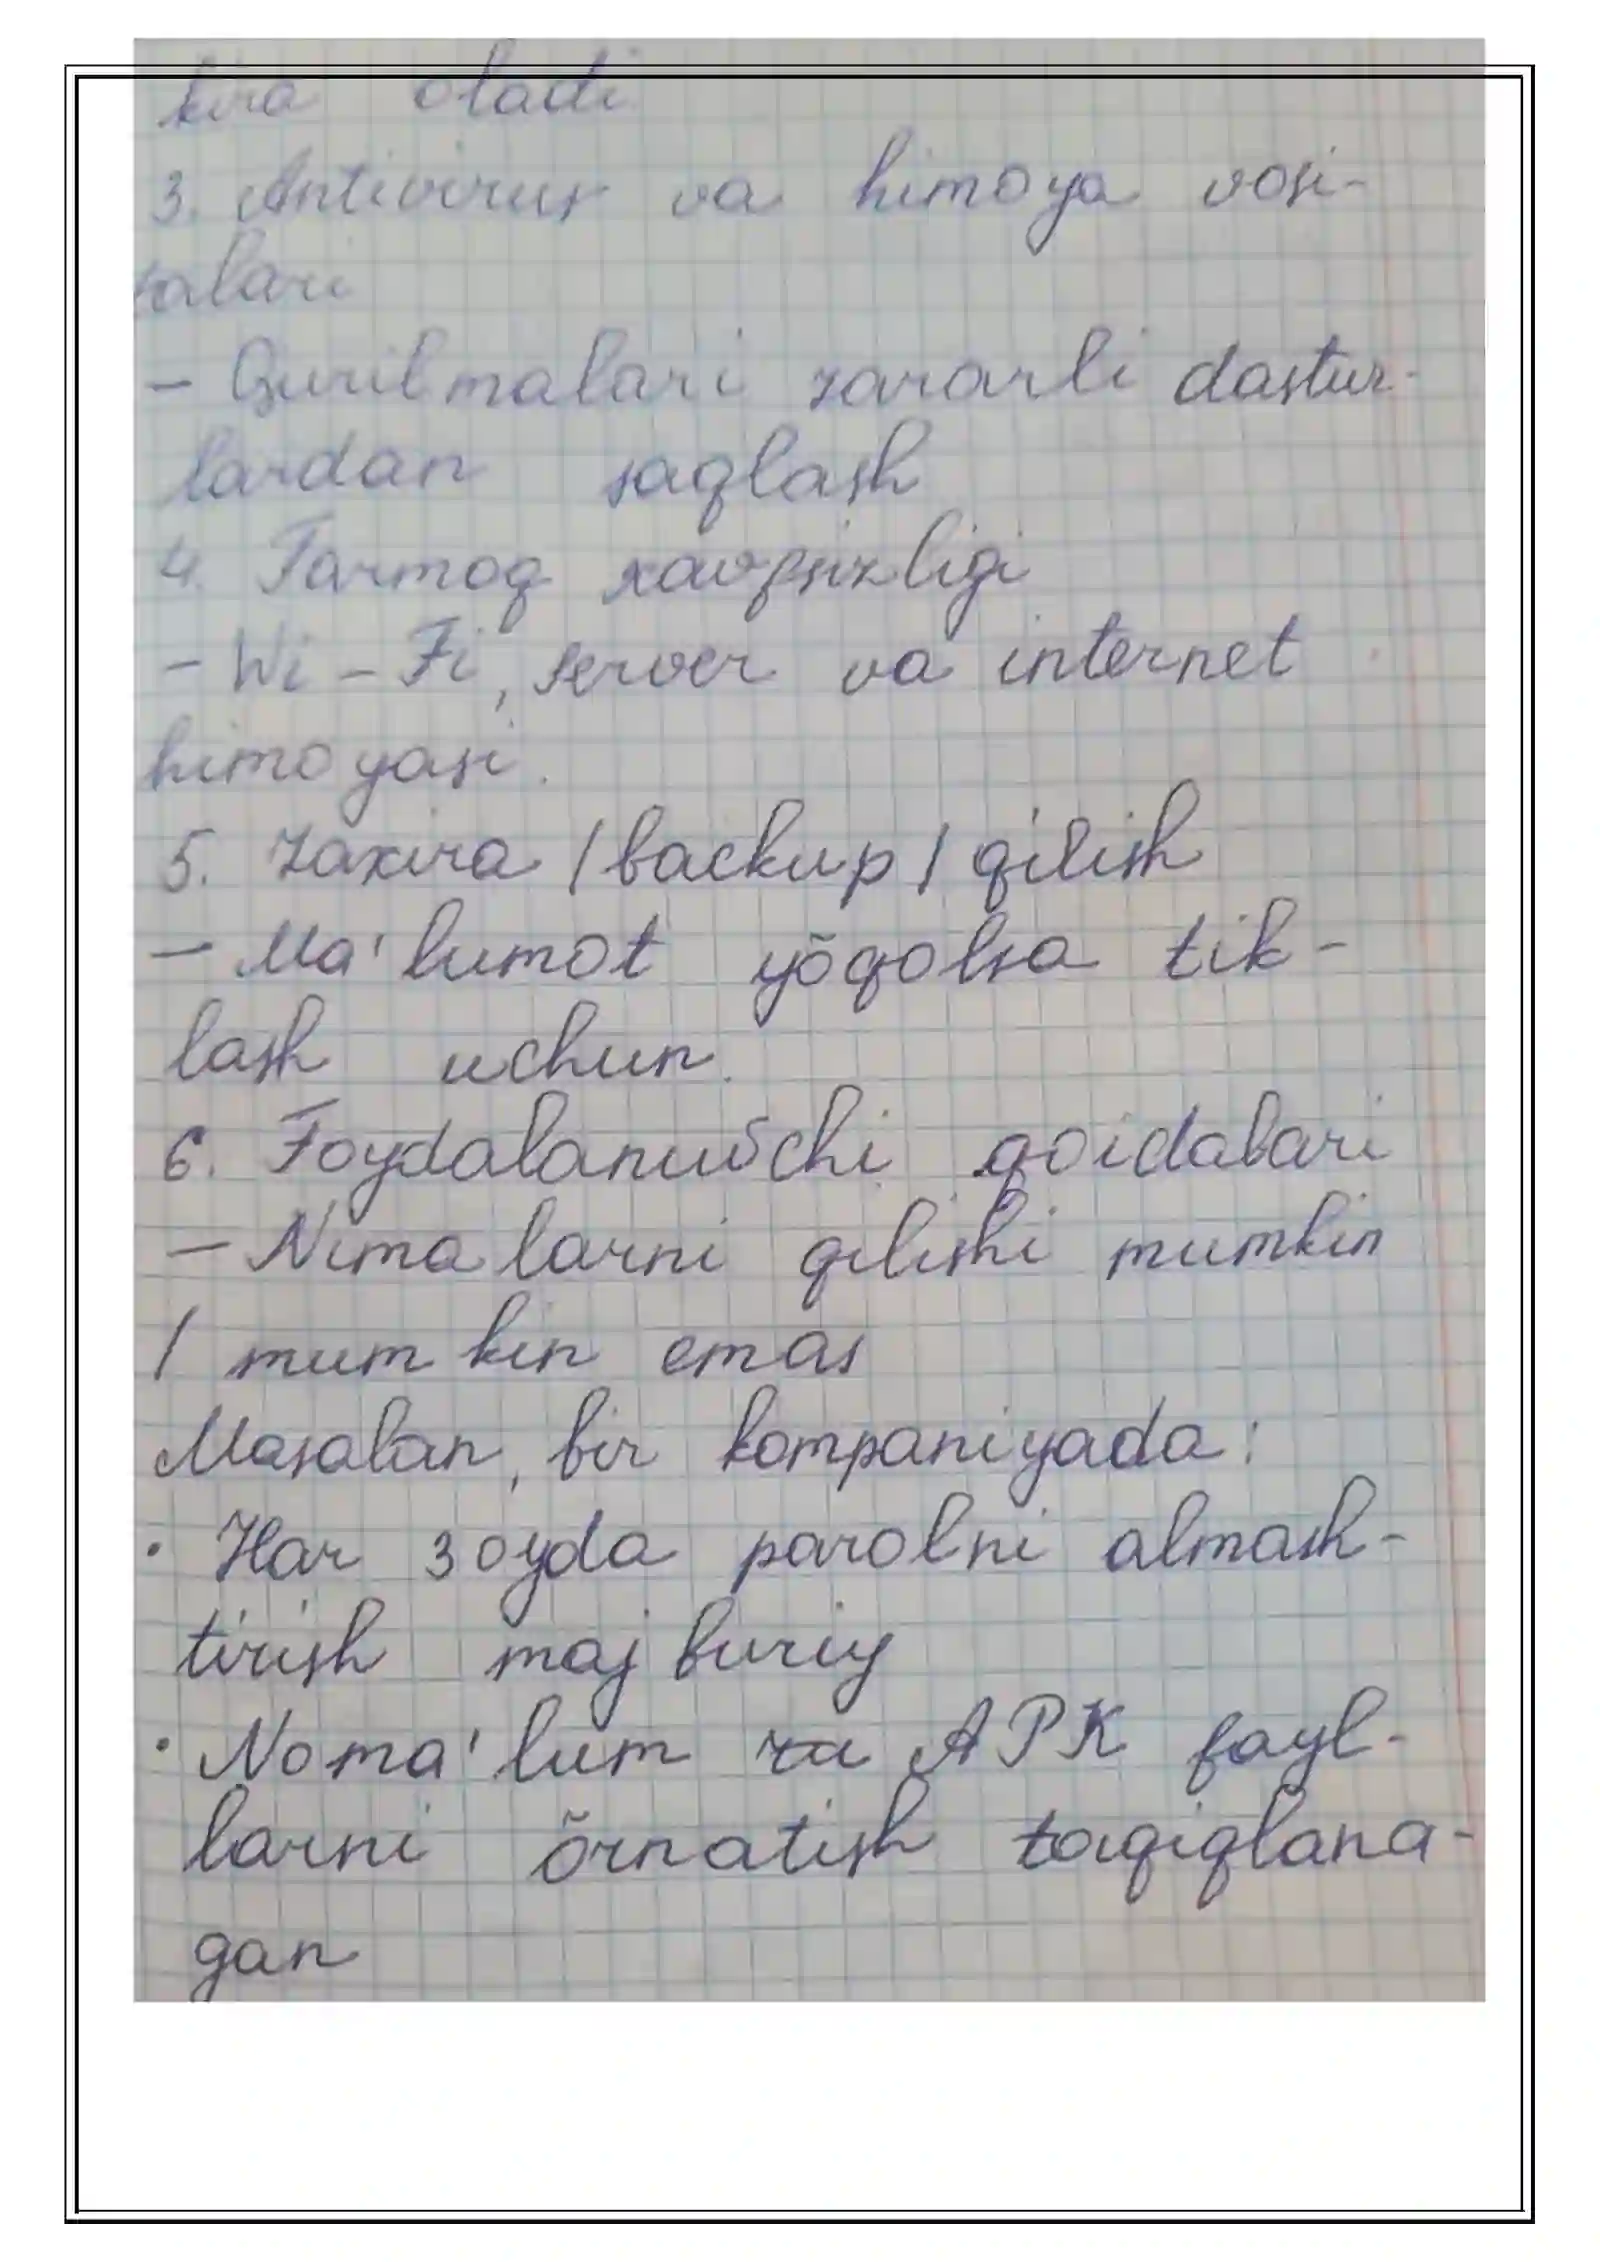 kira oladi
3. Antivirus va himoya vosi-
talari
- Qurilmalari zararli dastur-
lardan saqlash
4. Tarmoq xavfsizligi
- Wi-Fi, server va internet
himoyasi.
5. Zaxira / backup / qilish
- Ma'lumot yõqolsa tik-
lash uchun.
6. Foydalanuvchi qoidalari
- Nimalarni qilishi mumkin
/ mumkin emas
Masalan, bir kompaniyada:
• Har 3 oyda parolni almash-
tirish majburiy
• Noma'lum APK fayl-
larni õrnatish taqiqlana-
gan